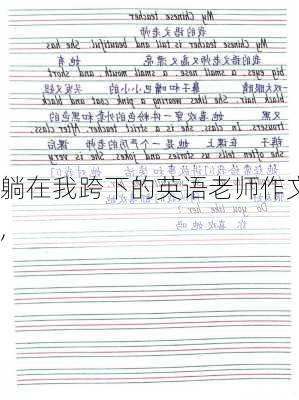 My Chinese teacher
我的语文老师
My Chinese teacher is tall and beautiful. She has
我的语文老师又高又漂亮 她有
big eyes, a small nose, a small mouth and short
双大眼睛 鼻子和嘴巴小小的
black hair. She likes wearing a pink coat and black
又黑 她喜欢穿一件粉色的外套和黑色的
trousers. In class, she is a strict teacher. After class,
裤子 在课上 她是一个严厉的老师 课后
she often tells us stories and jokes. She is very
躺在我跨下的英语老师作文
,
Do you like her?
你喜欢她吗